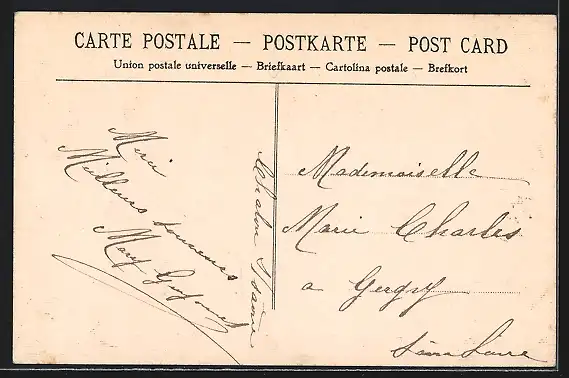 CARTE POSTALE — POSTKARTE — POST CARD
Union postale universelle — Briefkaart — Cartolina postale — Brefkort
Meilleurs souvenirs
Chalon s Saône
Mademoiselle
Marie Charles
a Gergy
Saône Loire